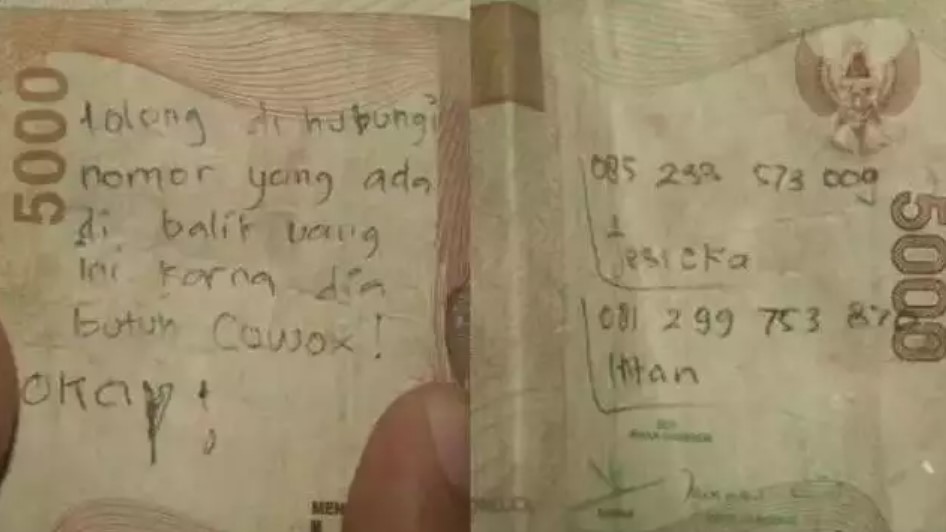 5000
tolong di hubungi
nomor yang ada
di balik uang
ini karna dia
butuh Cowox!
okay!
5000
085 233 573 009
Jesicka
081 299 753 87
Intan
MEN